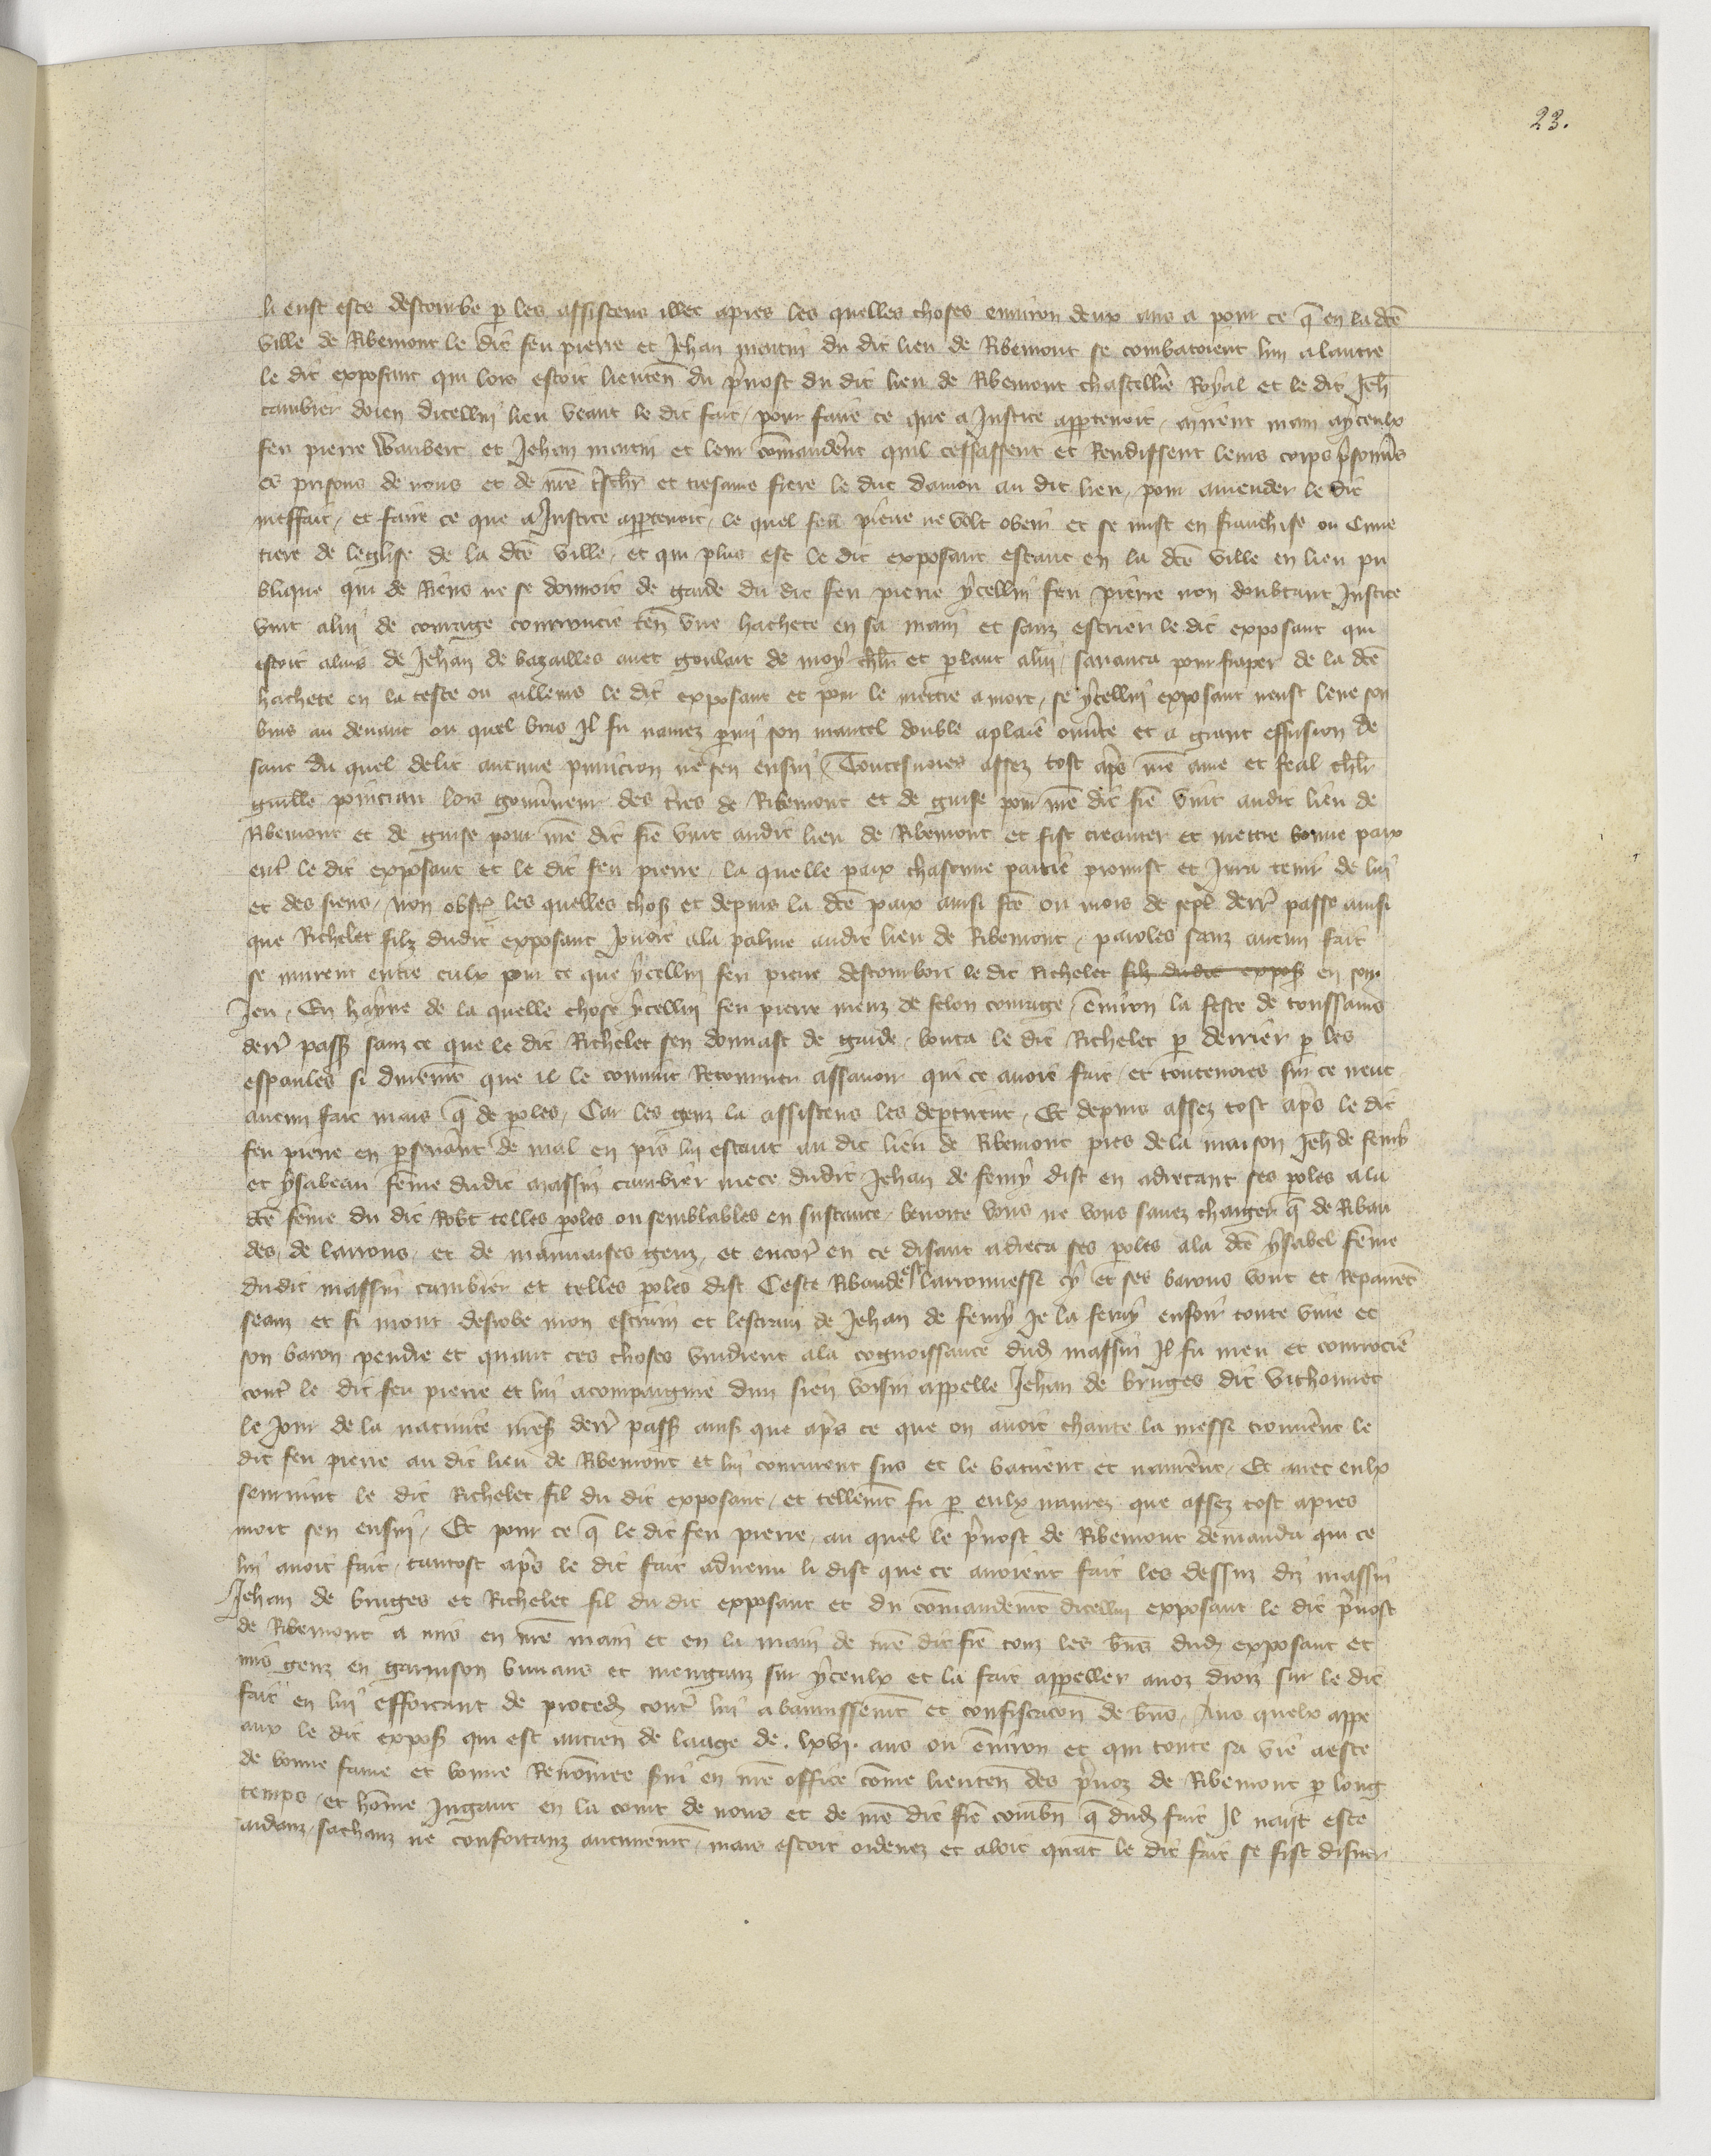 23.
li eust este destourbe p les assistens illec apres les quelles choses environ deux ans a pour ce q̄ en la dc̄e
ville de Ribemont le dit feu pierre et Jehan martin du dit lieu de Ribemont se combatoient lun a lautre
le dit exposant qui lors estoit lieuten̄ du p̄uost du dit lieu de Ribemont chastellerie Royal et le dit Jeh̄
cambier doien dicellui lieu veant le dit fait / pour faire ce que a Justice appartenoit / mirent main a yceulx
feu pierre Waubert et Jehan martin et leur com̄anderent quil cessassent et Rendissent leurs corps p̄sonn̄rs
es prisons de nous et de nr̄e tsch̄r et tresame frere le duc daniou au dit lieu / pour amender le dit
meffait / et faire ce que a Justice appartenoit / le quel feu pierre ne volt obeir et se mist en franchise ou Cime
tiere de leglise de la dc̄e ville / et qui plus est le dit exposant estant en la dc̄e ville en lieu pu
blique qui de Riens ne se donnoit de garde du dit feu pierre ycellui feu pierre non doubtant Justice
vint a lui de courage courroucie ten̄ vne hachete en sa main et sanz escrier le dit exposant qui
estoit alans de Jehan de bazailles auec goulart de moy ch̄lr et plant a lui / sauanca pour fraper de la dc̄e
hachete en la teste ou ailleurs le dit exposant et pour le mettre a mort / se ycellui exposant neust leue son
bras au deuant ou quel bras Il fu naurez pmi son mantel double a plaie ouuerte et a grant effusion de
sanc du quel delit aucune punicion ne sen ensui / Toutesuoies assez tost ap̄s nr̄e ame et feal ch̄lr
guill̄e poincian lors gouuerneur des t̄res de Ribemont et de guise pour nr̄e dit fr̄e vint audit lieu de
Ribemont et de guise pour nr̄e dit fr̄e vint audit lieu de Ribemont et fist creanter et mettre bonne paix
ent̄ le dit exposant et le dit feu pierre / la quelle paix chascune partie promist et Jura tenir de lui
et des siens / non obst̄ les quelles chos̄ et depuis la dc̄e paix ainsi fc̄e ou mois de sept̄ derr̄ passe ainsi
que Richelet filz dudit exposant Jouoit a la palme audit lieu de Ribemont / paroles sanz aucun fait
se murent entre eulx pour ce que ycellui feu pierre destourboit le dit Richelet filz dudit expos̄ en son
Jeu / En hayne de la quelle chose ycellui feu pierre meuz de felon courage / enuiron la feste de toussains
derr̄ pass̄ sanz ce que le dit Richelet sen donnast de garde / bouta le dit Richelet p derrier p les
espaules si durem̄t que il le conuint Retourner assauoir qui ce auoit fait / et toutesuoies sur ce neut
aucun fait mais q̄ de poles / Car les genz la assistens les deptirent / Et depuis assez tost ap̄s le dit
feu pierre en pseuerant de mal en pis lui estant au dit lieu de Ribemont pres de la maison Jeh̄ de femy
et ysabeau fem̄e dudit massin cambier niece dudit Jehan de femy dist en adrecant ses poles a la
dc̄e fem̄e du dit Rob̄t telles poles ou semblables en sustance / benoite vous ne vous sauez charger q̄ de Ribau
des / de larrons / et de mauuaises genz / et encor̄ en ce disant adreca ses poles a la dc̄e ysabel fem̄e
dudit massin cambier et telles poles dist Ceste Ribaude est larronnesse cy et ses barons vont et Repairent
seans et si mont desrobe mon estrain et lestrain de Jehan de femy Je la feray enfouir toute viue et
son baron pendre et quant ces choses vindrent a la cognoissance dud̄ massin Il fu meu et courrocie
cont̄ le dit feu pierre et lui acompaignie dun sien voisin appelle Jehan de bruges dit vithonnet
le Jour de la natiuite nr̄es̄ derr̄ pass̄ ainsi que ap̄s ce que on auoit chante la messe trouuerent le
dit feu pierre au dit lieu de Ribemont et lui coururent sus et le batirent et naurerent / Et auec eulx
seruint le dit Richelet fil du dit exposant / et tellem̄t fu p eulx naurez que assez tost apres
mort sen ensui / Et pour ce q̄ le dit feu pierre / au quel le p̄uost de Ribemont demanda qui ce
lui auoit fait / tantost ap̄s le dit fait aduenu li dist que ce auoient fait les dessuz diz massin
Jehan de bruges et Richelet fil du dit exposant et du com̄andem̄t dicellui exposant le dit p̄uost
de Ribemont a mis en nr̄e main et en la main de nr̄e dit fr̄e touz les b̄ns dud̄ exposant et
mis genz en garnison viuans et mengans sur yceulx et la fait appeller a noz droiz sur le dit
fait en lui efforcant de proced̄ cont̄ lui a bannissem̄t et confiscacon de b̄ns / Aus quelx appe
aux le dit expos̄ qui est ancien de laage de . lxvj. ans ou enuiron et qui toute sa vie a este
de bonne fame et bonne Renom̄ee serui en nr̄e office com̄e lieuten̄ des p̄uoz de Ribemont p long
temps / et hom̄e Jugant en la court de nous et de nr̄e dit fr̄e combn̄ q̄ dud̄ fait Il nait este
aidanz / sachanz ne confortanz aucunem̄t / mais estoit ordenez et aloit quat̄ le dit fait se fist disner